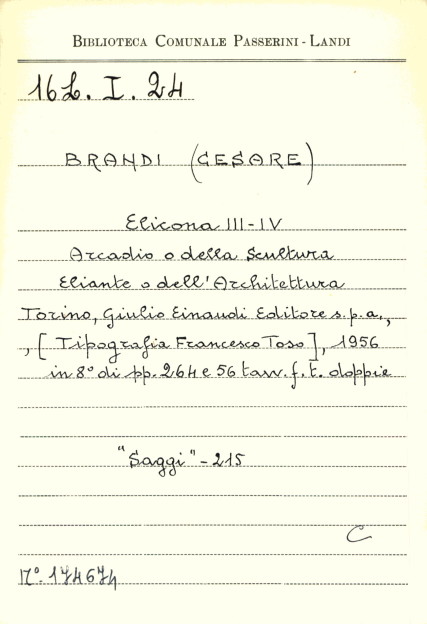 BIBLIOTECA COMUNALE PASSERINI - LANDI
16L. I. 24
BRANDI (CESARE)
Elicona III-IV
Arcadio o della Scultura
Eliante o dell'Architettura
Torino, Giulio Einaudi Editore s.p.a.,
, [Tipografia Francesco Toso], 1956
in 8º di pp. 264 e 56 tavv. f. t. doppie
"Saggi" - 215
C
Nº. 174674